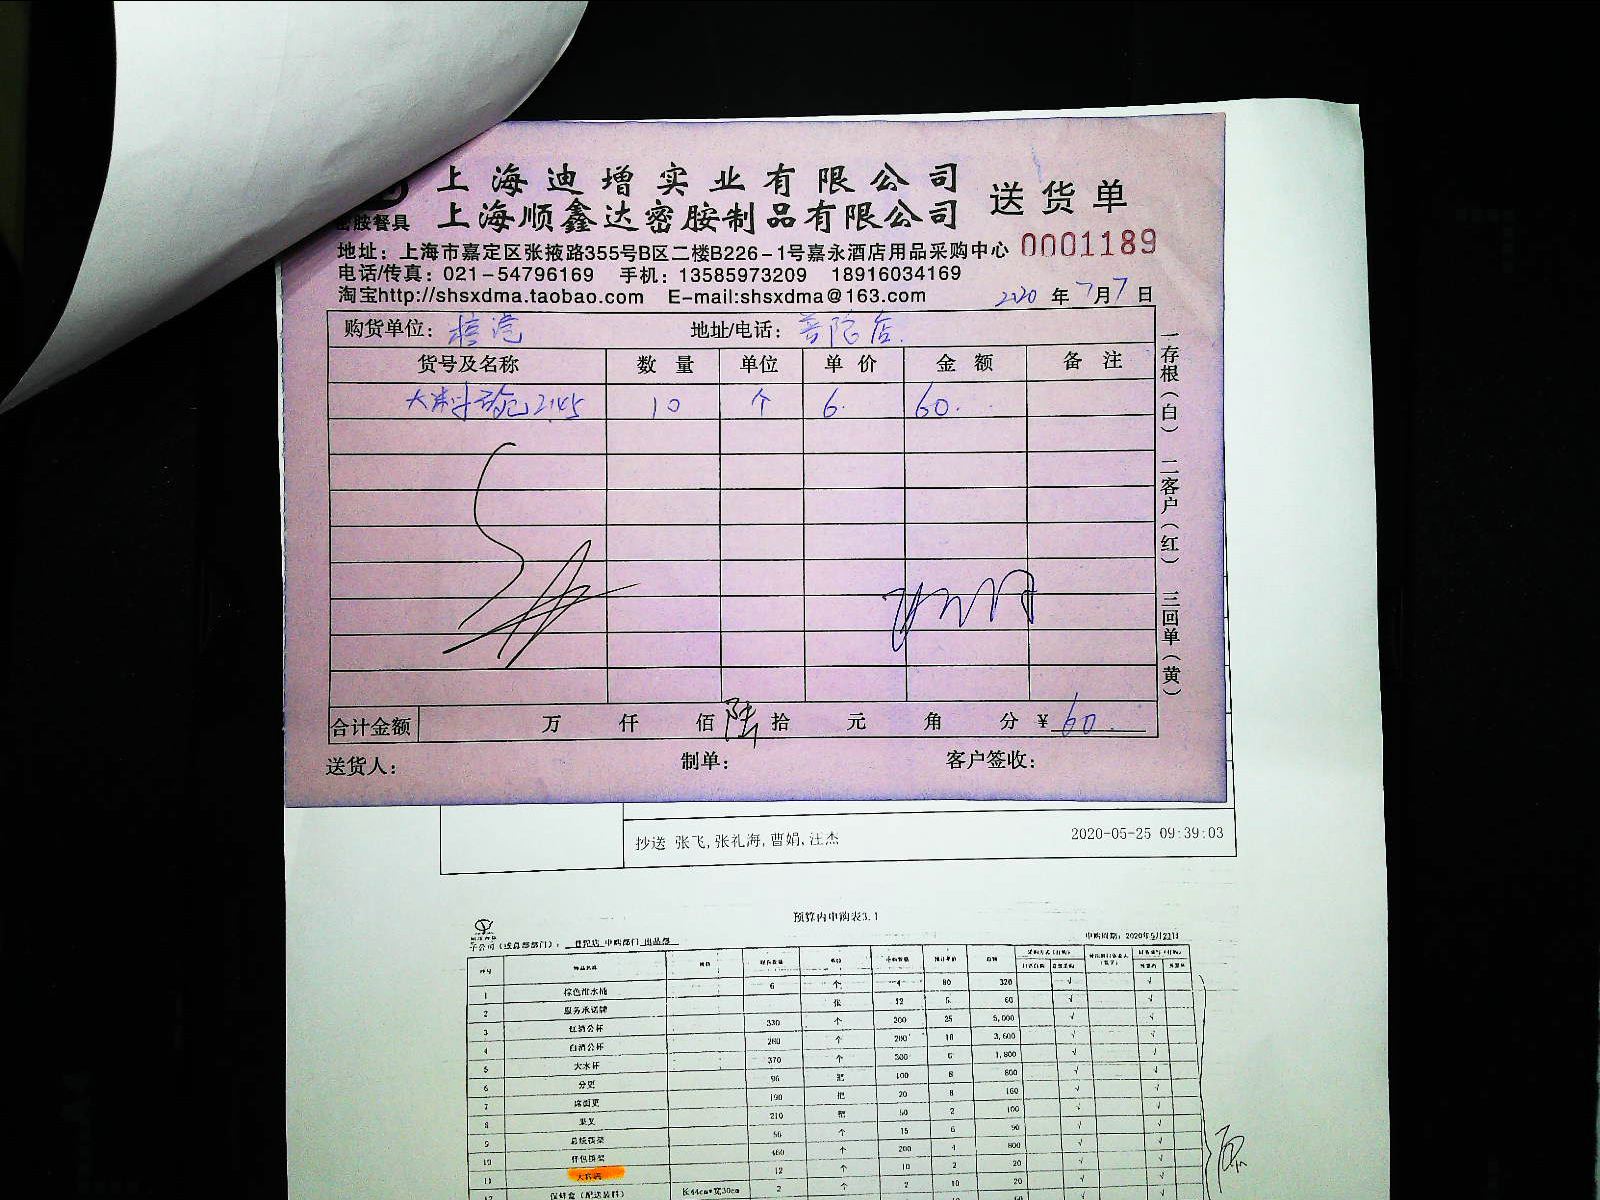 上海迪增实业有限公司
上海顺鑫达密胺制品有限公司
送货单
密胺餐具
地址：上海市嘉定区张掖路355号B区二楼B226-1号嘉永酒店用品采购中心
0001189
电话/传真：021-54796169 手机：13585973209 18916034169
淘宝http://shsxdma.taobao.com E-mail:shsxdma@163.com
2020 年 7 月 7 日
购货单位： 地址/电话：普陀店
货号及名称 数量 单位 单价 金额 备注
2145 10 个 6. 60.
一存根（白） 二客户（红） 三回单（黄）
合计金额 万 仟 佰 陆 拾 元 角 分 ¥ 60.
送货人： 制单： 客户签收：
抄送 张飞,张礼海,曹娟,汪杰 2020-05-25 09:39:03
预算内申购表3.1
子公司（或总部部门）： 普陀店 申购部门 出品部 申购周期：2020年5月22日
1 棕色泔水桶 6 个 4 80 320 √ √
2 服务承诺牌 张 12 5 60 √ √
3 红酒公杯 330 个 200 25 5,000 √ √
4 白酒公杯 280 个 200 18 3,600 √ √
5 大水杯 370 个 300 6 1,800 √ √
6 分更 96 把 100 8 800 √ √
7 席面更 190 把 20 8 160 √ √
8 果叉 210 把 50 2 100 √ √
9 56 个 15 6 90 √ √
10 460 个 200 4 800 √ √
11 12 个 10 2 20 √ √
12 保鲜盒（配送装料） 长44cm*宽30cm 2 个 2 10 20 √ √